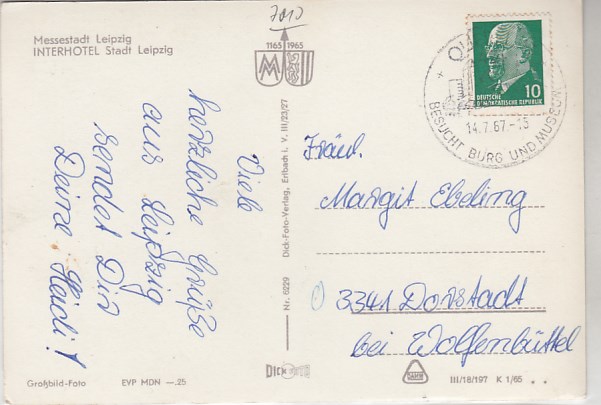 7010
Messestadt Leipzig
INTERHOTEL Stadt Leipzig
1165 1965
MM
Viele
herzliche Grüße
aus Leipzig
sendet Dir
Deine Heidi!
Nr. 6229 Dick-Foto-Verlag, Erlbach i. V. III/23/27
DEUTSCHE
DEMOKRATISCHE REPUBLIK
10
14.7.67-15
BESUCHT BURG UND MUSEUM
Fräul.
Margit Ebeling
3341 Dorstadt
bei Wolfenbüttel
Großbild-Foto
EVP MDN —.25
DICK
III/18/197 K 1/65